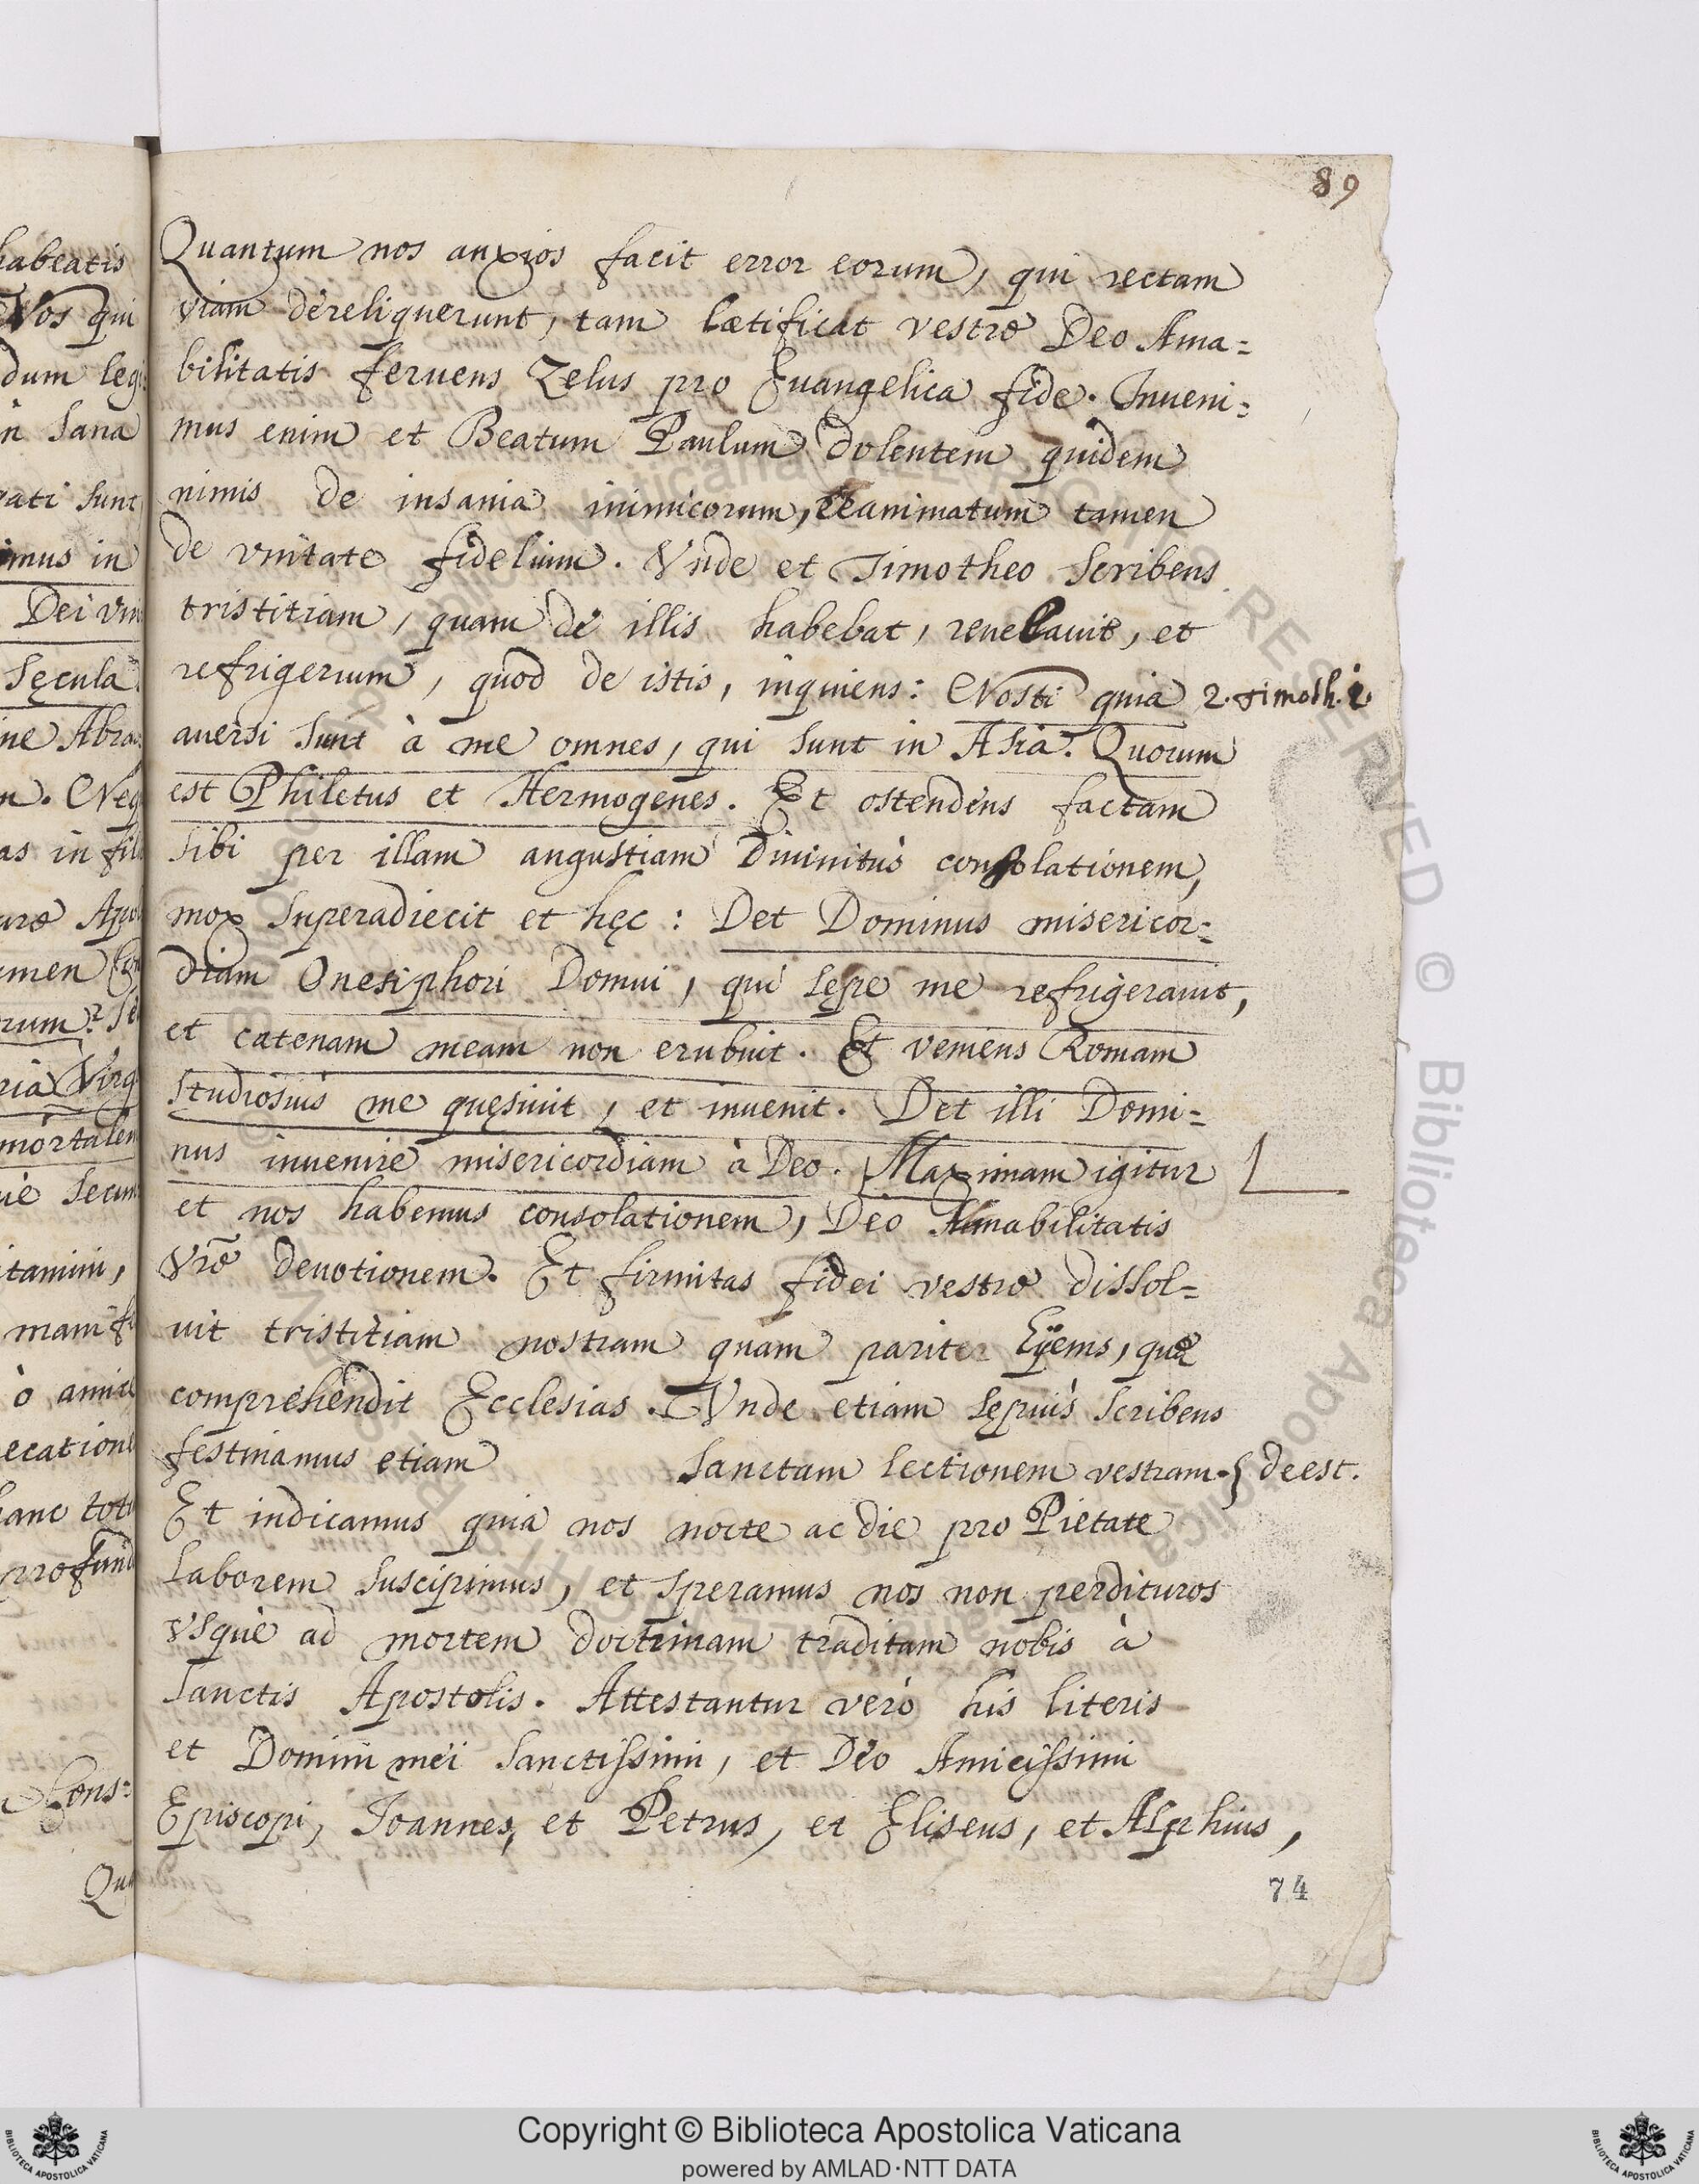 89
Quantum nos anxios facit error eorum, qui rectam
viam dereliquerunt, tam lætificat vestræ Deo Ama=
bilitatis feruens Zelus pro Euangelica fide. Inueni=
mus enim et Beatum Paulum dolentem quidem
nimis de insania inimicorum, reanimatum tamen
de vnitate fidelium. Vnde et Timotheo scribens
tristitiam, quam de illis habebat, reuelauit, et
refrigerium, quod de istis, inquiens: Nosti quia
2. Timoth. 1.
auersi sunt à me omnes, qui sunt in Asia. Quorum
est Philetus et Hermogenes. Et ostendens factam
sibi per illam angustiam Diuinitùs consolationem,
mox superadiecit et hęc: Det Dominus misericor=
diam Onesiphori Domui, qui sępe me refrigerauit,
et catenam meam non erubuit. Et veniens Romam
studiosiùs me quęsiuit, et inuenit. Det illi Domi=
nus inuenire misericordiam à Deo. Maximam igitur
et nos habemus consolationem, Deo Amabilitatis
Vr̃æ deuotionem. Et firmitas fidei vestræ dissol=
uit tristitiam nostram quam pariter Hyems, quæ
comprehendit Ecclesias. Vnde etiam sępiùs scribens
festinamus etiam sanctam lectionem vestram. } deest.
Et indicamus quia nos nocte ac die pro Pietate
laborem suscipimus, et speramus nos non perdituros
vsquè ad mortem doctrinam traditam nobis à
sanctis Apostolis. Attestantur verò his literis
et Domini mei sanctissimi, et Deo Amicissimi
Episcopi, Ioannes, et Petrus, et Eliseus, et Alphius,
74
habeatis
Nos qui
dum leg
sana
sunt
imus in
Dei
sęcula
Copyright © Biblioteca Apostolica Vaticana
powered by AMLAD·NTT DATA